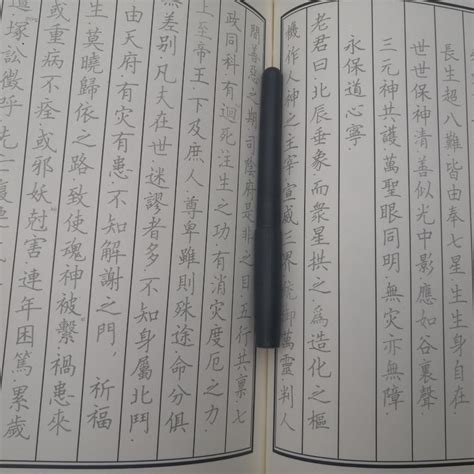 長生超八難皆由奉七星生生身自在
世世保神清善似光中影應如谷裏聲
三元神共護萬聖眼同明無灾亦無障
永保道心寧
老君曰.北辰垂象而衆星拱之.為造化之樞
機作人神之主宰宣威三界統御萬靈.判人
間善惡之期.司陰府是非之目.五行共稟七
政同科有迴死注生之功.有消灾度厄之力.
上至帝王.下及庶人.尊卑雖則殊途.命分俱
無差別.凡夫在世.迷謬者多.不知身屬北鬥.
由天府有灾有患.不知解謝之門,祈福
生莫曉歸依之路致使魂神被繫.禍患來
或重病不痊.或邪妖尅害連年困篤累歲
塚訟徵呼先亡復